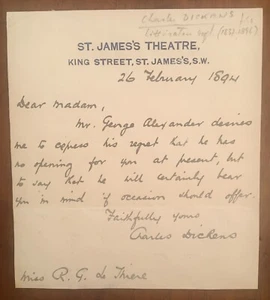 Charles DICKENS
ST. JAMES'S THEATRE,
KING STREET, ST. JAMES'S, S.W.
26 February 1894
Dear Madam,
Mr. George Alexander desires
me to express his regret that he has
no opening for you at present, but
to say that he will certainly bear
you in mind if occasion should offer.
Faithfully yours
Charles Dickens
Miss R. G. Le Thiere